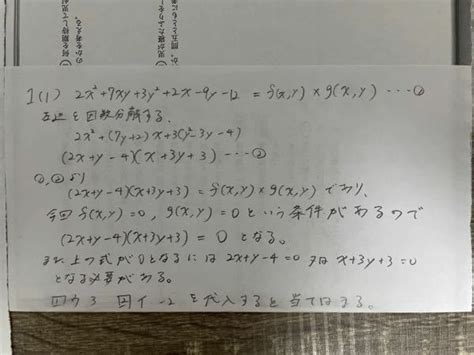 1(1) 2x²+7xy+3y²+2x-9y-12 = f(x,y)×g(x,y) …①
左辺を因数分解する、
2x²+(7y+2)x+3(y²-3y-4)
(2x+y-4)(x+3y+3) …②
①,②より
(2x+y-4)(x+3y+3)=f(x,y)×g(x,y)であり、
今回f(x,y)=0, g(x,y)=0という条件があるので
(2x+y-4)(x+3y+3) = 0 となる。
また上の式が0となるには 2x+y-4=0 又は x+3y+3=0
となる必要がある。
ウ 3 イ -2 を代入すると当てはまる。